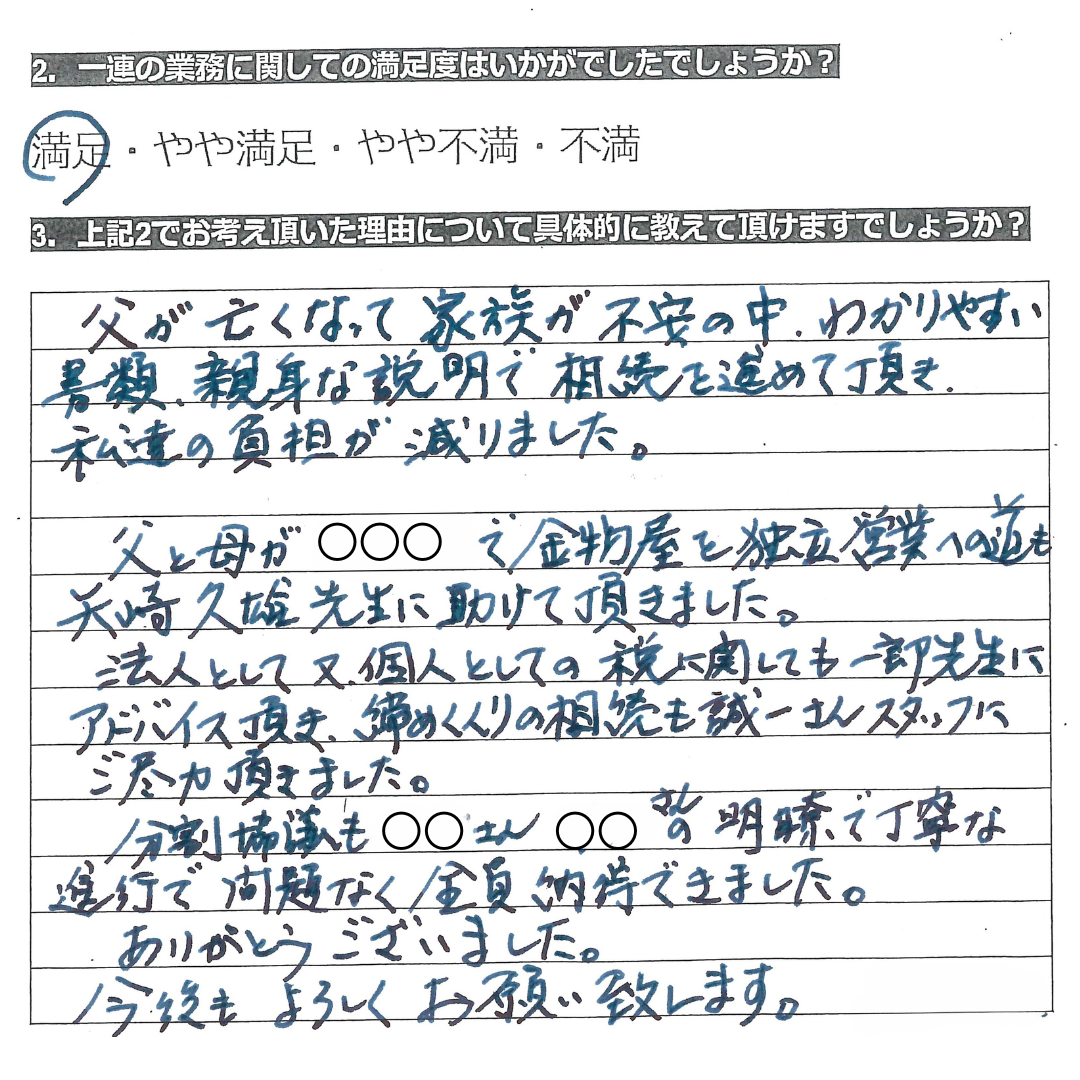 2. 一連の業務に関しての満足度はいかがでしたでしょうか？
満足・やや満足・やや不満・不満
3. 上記2でお考え頂いた理由について具体的に教えて頂けますでしょうか？
父が亡くなって家族が不安の中、わかりやすい
書類、親身な説明で相続を進めて頂き、
私達の負担が減りました。
父と母が○○○で金物屋を独立営業への道も
矢崎久雄先生に助けて頂きました。
法人として又、個人としての税に関しても一郎先生に
アドバイス頂き、締めくくりの相続も誠一さんスタッフに
ご尽力頂きました。
分割協議も○○さん○○さんの明瞭で丁寧な
進行で問題なく全員納得できました。
ありがとうございました。
今後もよろしくお願い致します。